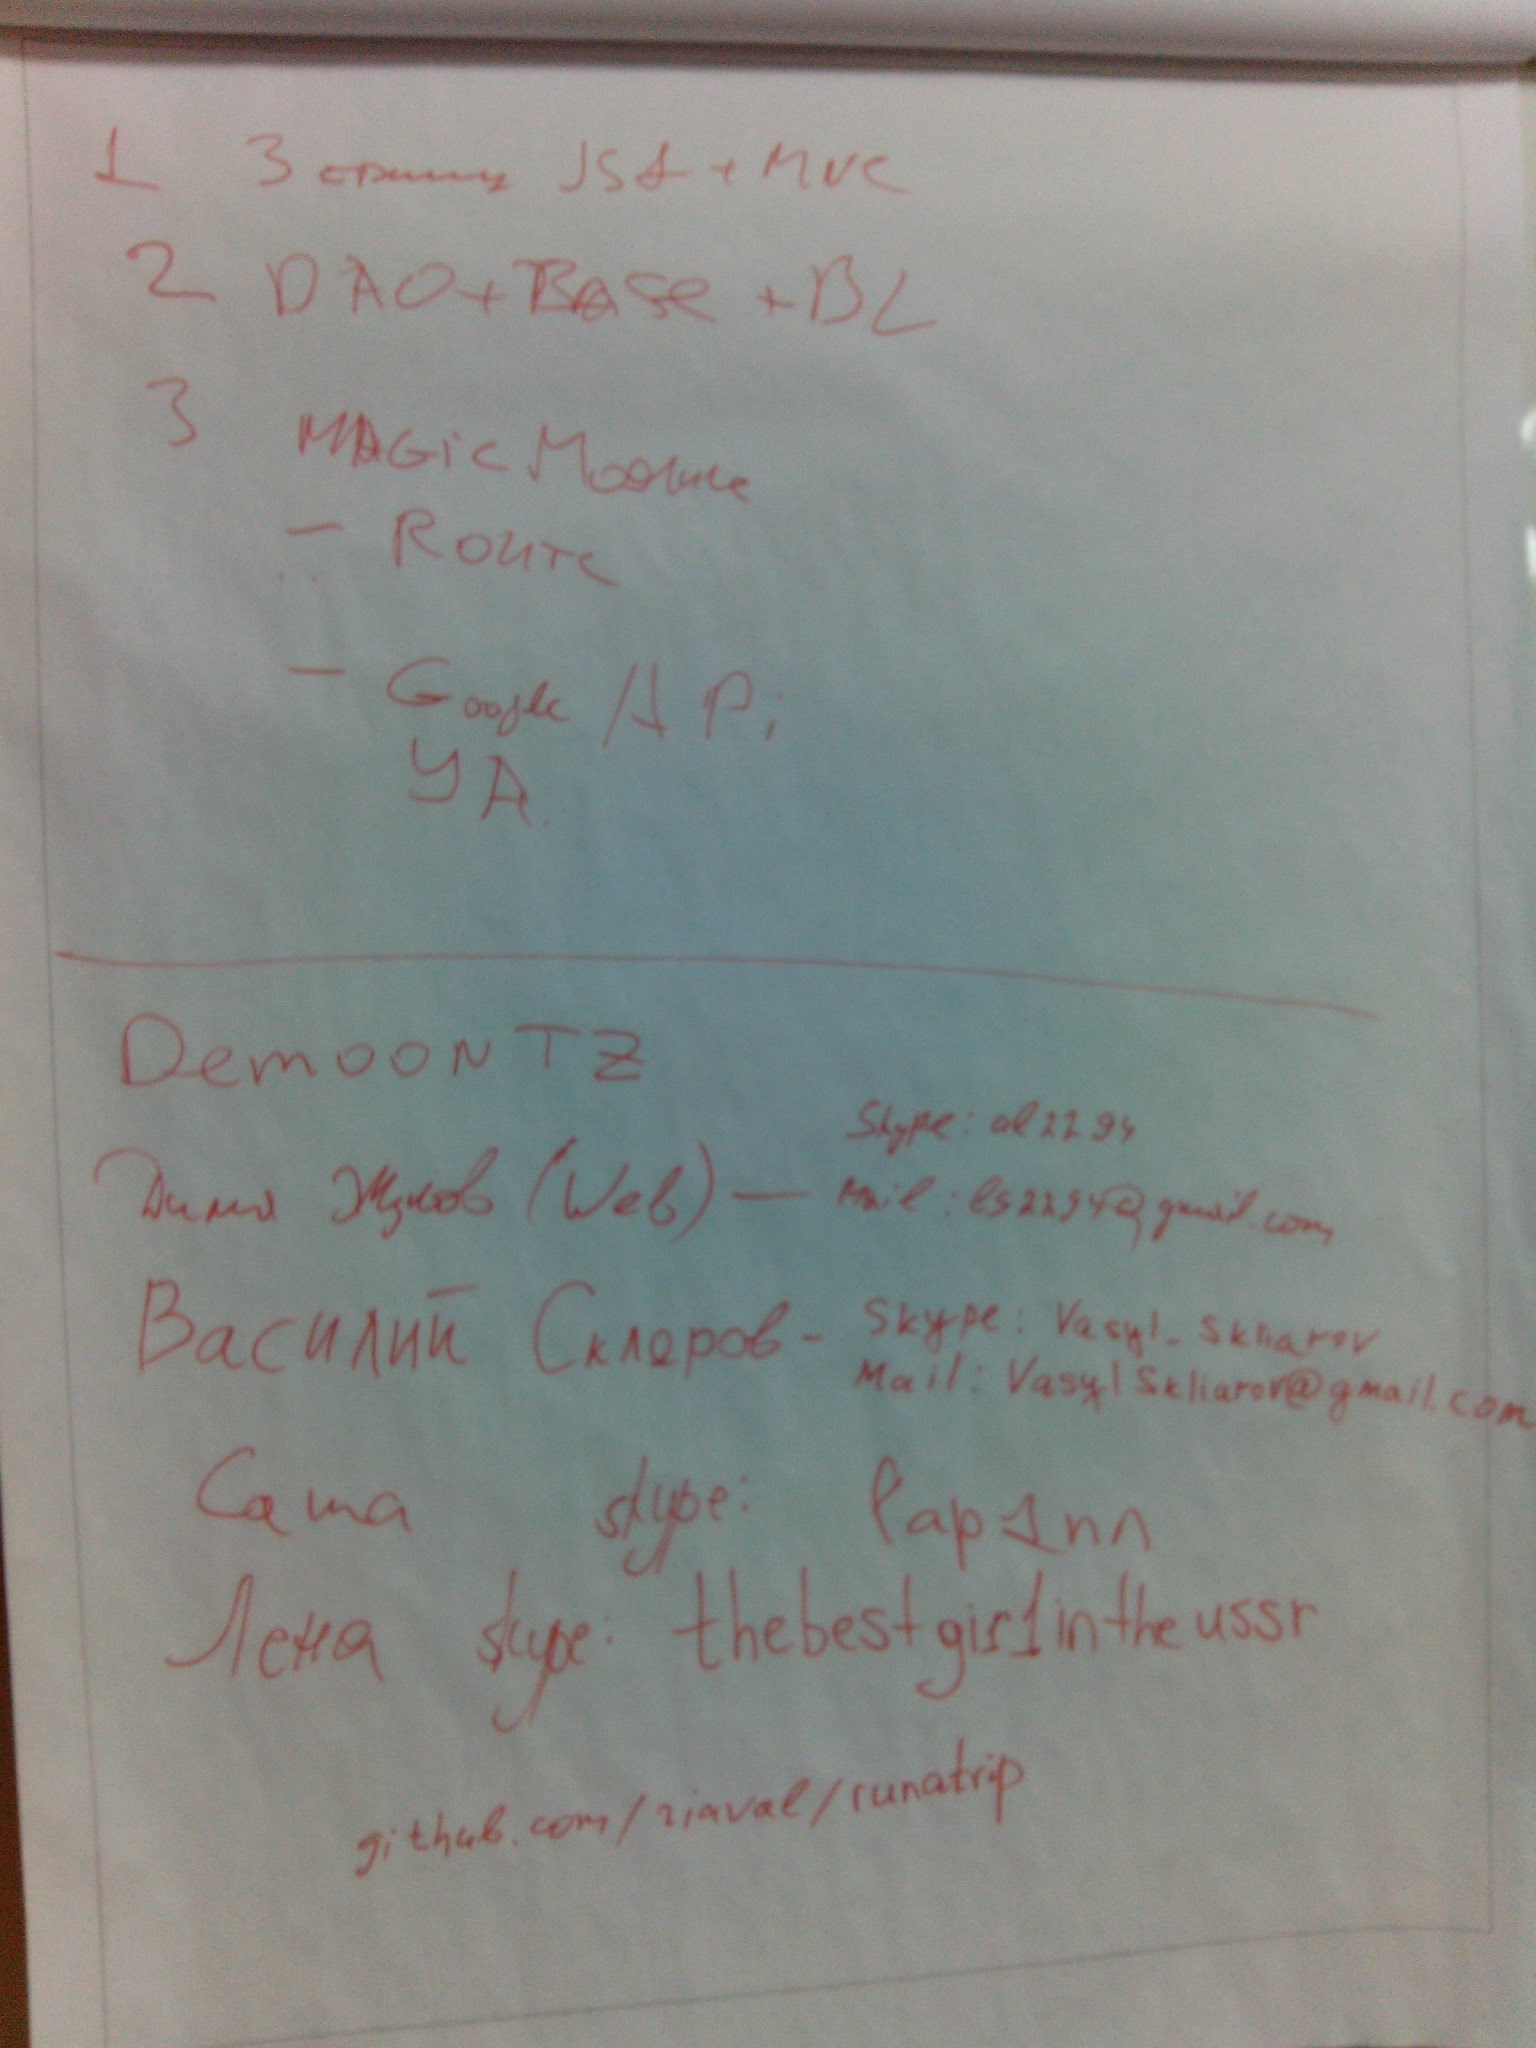 1 3 страниц JS1 + MVC
2 DAO + Base + BL
3 MAGic Module
- Route
- Google / API
YA
DemooN TZ
Skype: al2294
Дима Жуков (Web) —
Mail: ls2294@gmail.com
Василий Скляров - Skype: Vasyl_Skliarov
Mail: VasylSkliarov@gmail.com
Саша skype: lap1nn
Лена skype: thebestgirlintheussr
github.com/riaval/runatrip